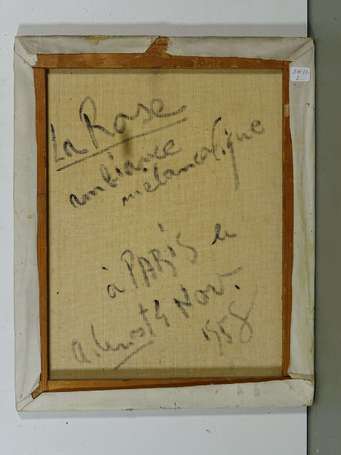 La Rose
ambiance
mélancolique
à PARIS le
4 Nov.
1958